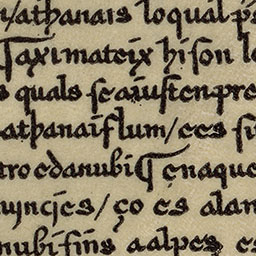 n/athanais loqual ps
Taximateix hi son lo
s quals se aiusten pre
athanaiflum/ees su
tro edanubi¶ enaque
uyncies/ço es alan
nubi fins aalpes es